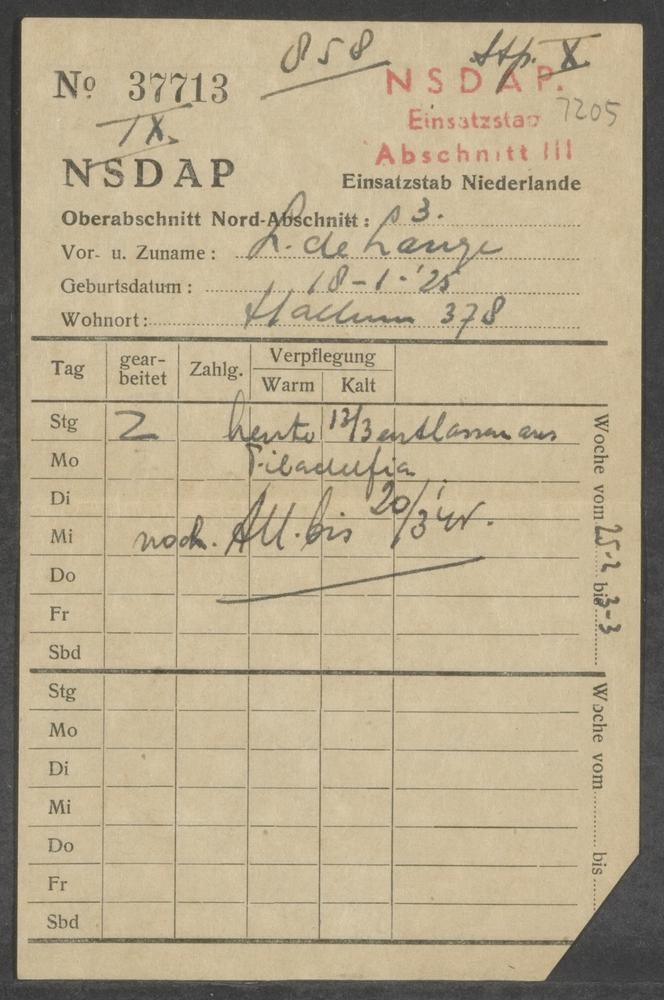 858
Stp. X
Nº 37713
NSDAP.
7205
IX.
Einsatzstab
Abschnitt III
NSDAP
Einsatzstab Niederlande
Oberabschnitt Nord-Abschnitt: 3.
Vor- u. Zuname: L. de Lange
Geburtsdatum: 18-1-'25
Wohnort: Hallum 378
Tag gear-beitet Zahlg. Verpflegung
Warm Kalt
Stg Z heute 13/3 entlassen aus
Mo
Di
Mi noch. All. bis 20/3
Do
Fr
Sbd
Woche vom 25-2 bis 3-3
Stg
Mo
Di
Mi
Do
Fr
Sbd
Woche vom bis